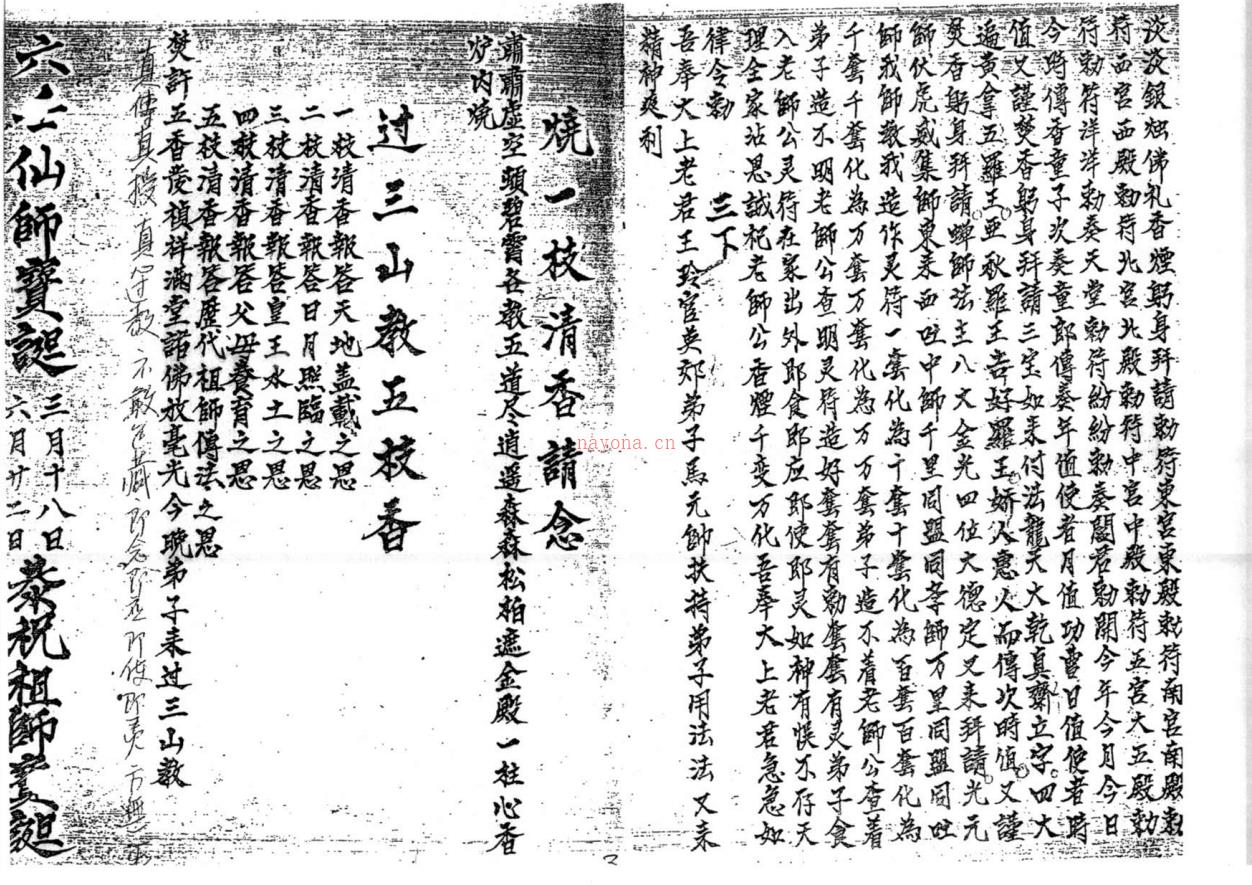 淡淡銀烛佛礼香煙躬身拜請勅符東宮東殿勅符南宮南殿勅
符西宮西殿勅符北宮北殿勅符中宮中殿勅符五宮大五殿勅
符勅符洋洋勅奏天堂勅符紛紛勅奏閻君勅開今年今月今日
今時傳香童子次奏童郎傳奏年值使者月值功曹日值使者時
值又謹焚香躬身拜請三宝如来付法龍天大乾真齋立字四大
遍黄拿五羅王亜秋羅王吉好羅王嬌人惠人而傳次時值又謹
焚香躬身拜請蝉師法主八大金光四位大德定又来拜請光元
師伏虎威集師東来西吐中師千里同盟同李師万里同盟同吐
師我師教我造作灵符一套化為十套十套化為百套百套化為
千套千套化為万套万套化為万万套弟子造不着老師公查着
弟子造不明老師公查明灵符造好套套有勅套套有灵弟子食
入老師公灵符在家出外即食即应即使即灵如神有悮不存天
理全家沾恩誠祀老師公香煙千变万化吾奉大上老君急急如
律令勅
三下
吾奉大上老君王玲官英郊弟子馬元帥扶持弟子用法法又来
精神爽利
燒一枝清香請念
肅肅虚空頭碧霄各教五道尽逍遥森森松柏遮金殿一柱心香
炉内燒
过三山教五枝香
一枝清香報答天地盖載之恩
二枝清香報答日月照臨之恩
三枝清香報答皇王水土之恩
四枝清香報答父母養育之恩
五枝清香報答歷代祖師傳法之恩
焚許五香發禎祥滿堂諸佛放毫光今晚弟子来过三山教
真傳真授真
六壬仙師寶誕 三月十八日 六月廿二日 恭祝祖師寶誕
nayona.cn